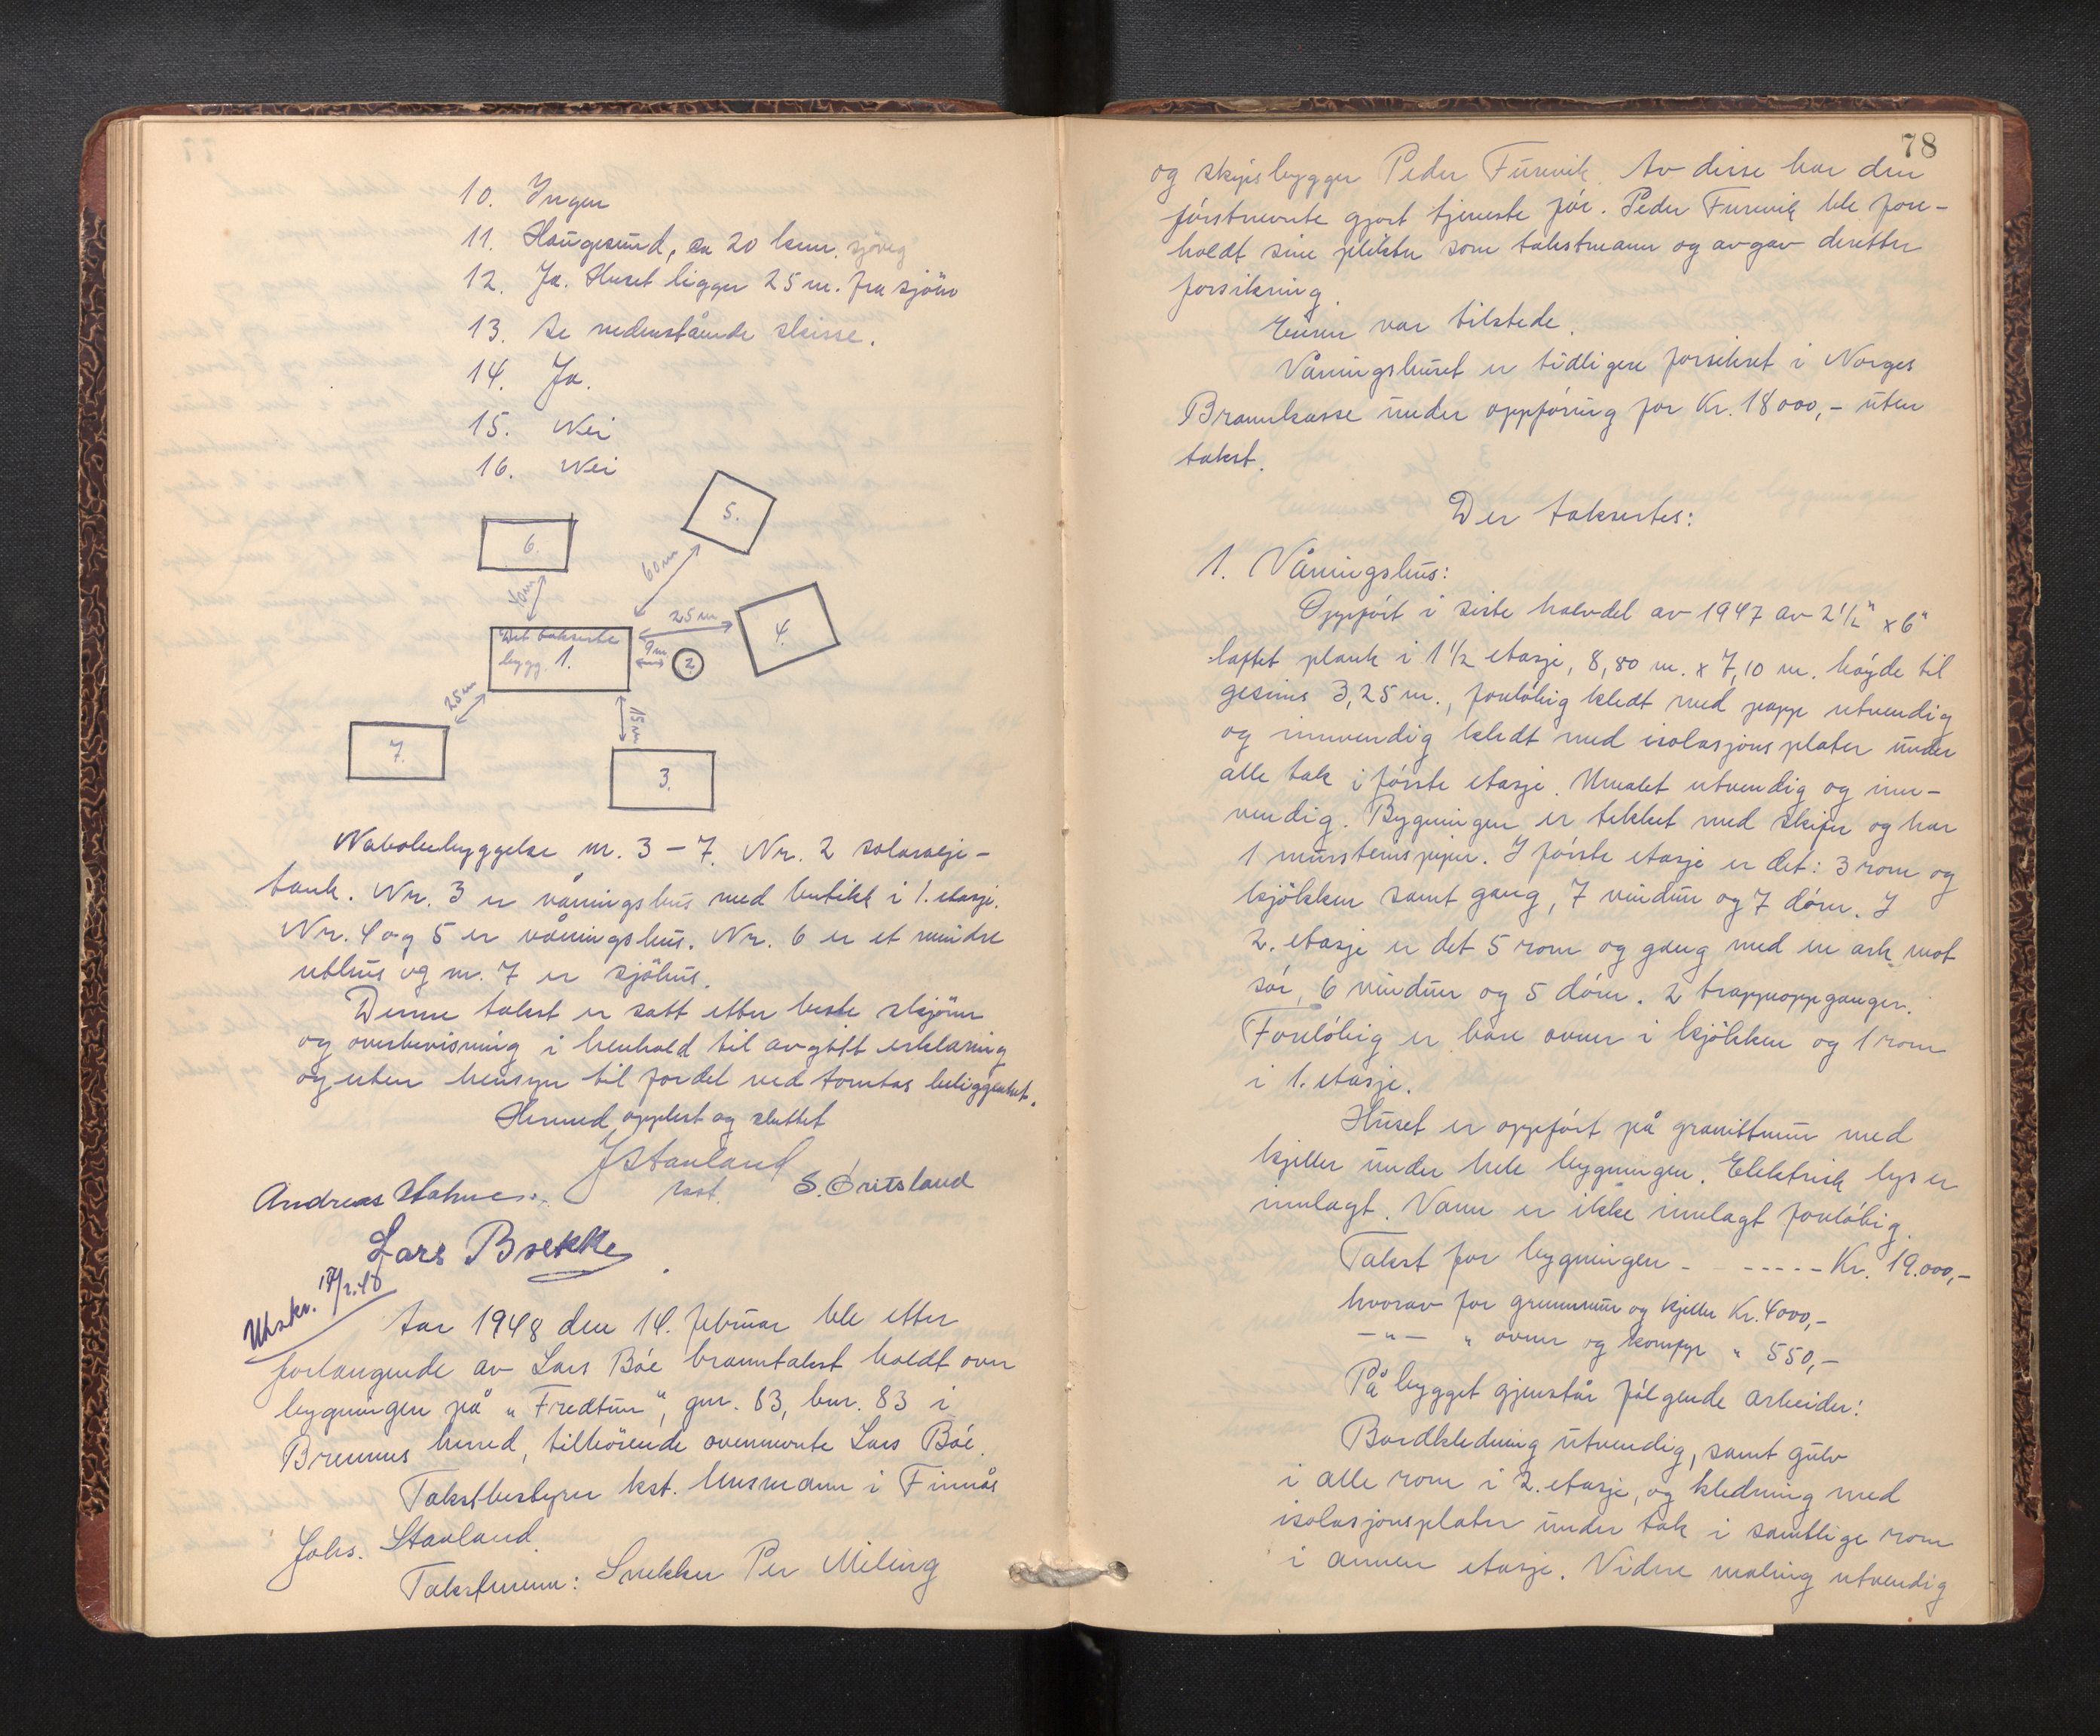 10. Ingen
11. Haugesund, ca 20 km. sjöveg
12. Ja. Huset ligger 25 m. fra sjöen
13. Se nedenstående skisse.
14. Ja.
15. Nei
16. Nei
5.
6.
60 m
10 m
25 m
4.
Det takserte
bygg. 1.
9 m
2
25 m
15 m
7.
3.
Nabobebyggelse nr. 3 – 7. Nr. 2 solarolje-
tank. Nr. 3 er våningshus med butikk i 1. etasje.
Nr. 4 og 5 er våningshus. Nr. 6 er et mindre
uthus og nr. 7 er sjöhus.
Denne takst er satt etter beste skjönn
og overbevisning i henhold til avgitt erklæring
og uten hensyn til fordel ved tomtas beliggenhet.
Hermed opplest og sluttet
J Stavland
kst.
S. Öritsland
Andreas
Lars Brekke
Utskr. 17/2.48
Aar 1948 den 14. februar ble etter
forlangende av Lars Bóe branntakst holdt over
bygningen på "Fredtun", gnr. 83, bnr. 83 i
Bremnes herred, tilhörende ovennevnte Lars Bóe.
Takstbestyrer kst. lensmann i Finnås
Johs. Stavland.
Takstmenn: Snekker Per Meling
78
og skipsbygger Peder Furevik. Av disse har den
förstnevnte gjort tjeneste för. Peder Furevik ble fore-
holdt sine plikter som takstmann og avgav deretter
forsikring.
Eieren var tilstede.
Våningshuset er tidligere forsikret i Norges
Brannkasse under oppföring for Kr. 18000,- uten
takst.
Der taksertes:
1. Våningshus:
Oppfört i siste halvdel av 1947 av 2½" x 6"
laftet plank i 1½ etasje, 8,80 m. x 7,10 m. höyde til
gesims 3,25 m., forelöbig kledt med papp utvendig
og innvendig kledt med isolasjonsplater under
alle tak i förste etasje. Umalet utvendig og inn-
vendig. Bygningen er tekket med skifer og har
1 murstenspipe. I förste etasje er det: 3 rom og
kjökken samt gang, 7 vinduer og 7 dörer. I
2. etasje er det 5 rom og gang med en ark mot
sör, 6 vinduer og 5 dörer. 2 trappeoppganger.
Forelöbig er bare ovner i kjökken og 1 rom
i 1. etasje.
Huset er oppfört på granittmur med
kjeller under hele bygningen. Elektrisk lys er
innlagt. Vann er ikke innlagt forelöbig.
Takst for bygningen - - - - - - Kr. 19.000,-
hvorav for grunnmur og kjeller Kr. 4000,-
— " — " ovner og komfyr " 550,-
På bygget gjenstår fölgende arbeider:
Bordkledning utvendig, samt gulv
i alle rom i 2. etasje, og kledning med
isolasjonsplater under tak i samtlige rom
i annen etasje. Videre maling utvendig